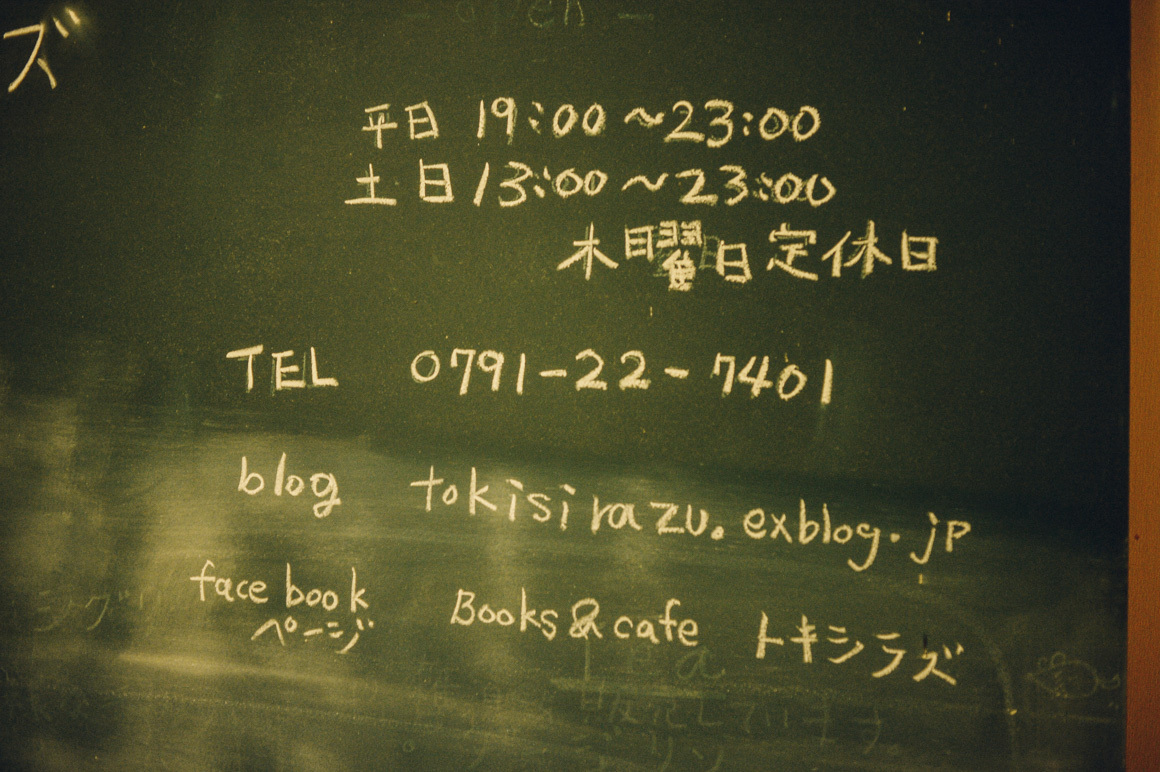 ズ
平日 19:00～23:00
土日 13:00～23:00
木曜日定休日
TEL 0791-22-7401
blog tokisirazu.exblog.jp
facebook ページ Books&cafe トキシラズ